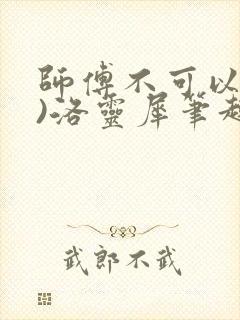 師傅不可以
)洛靈犀筆趣
武郎不武